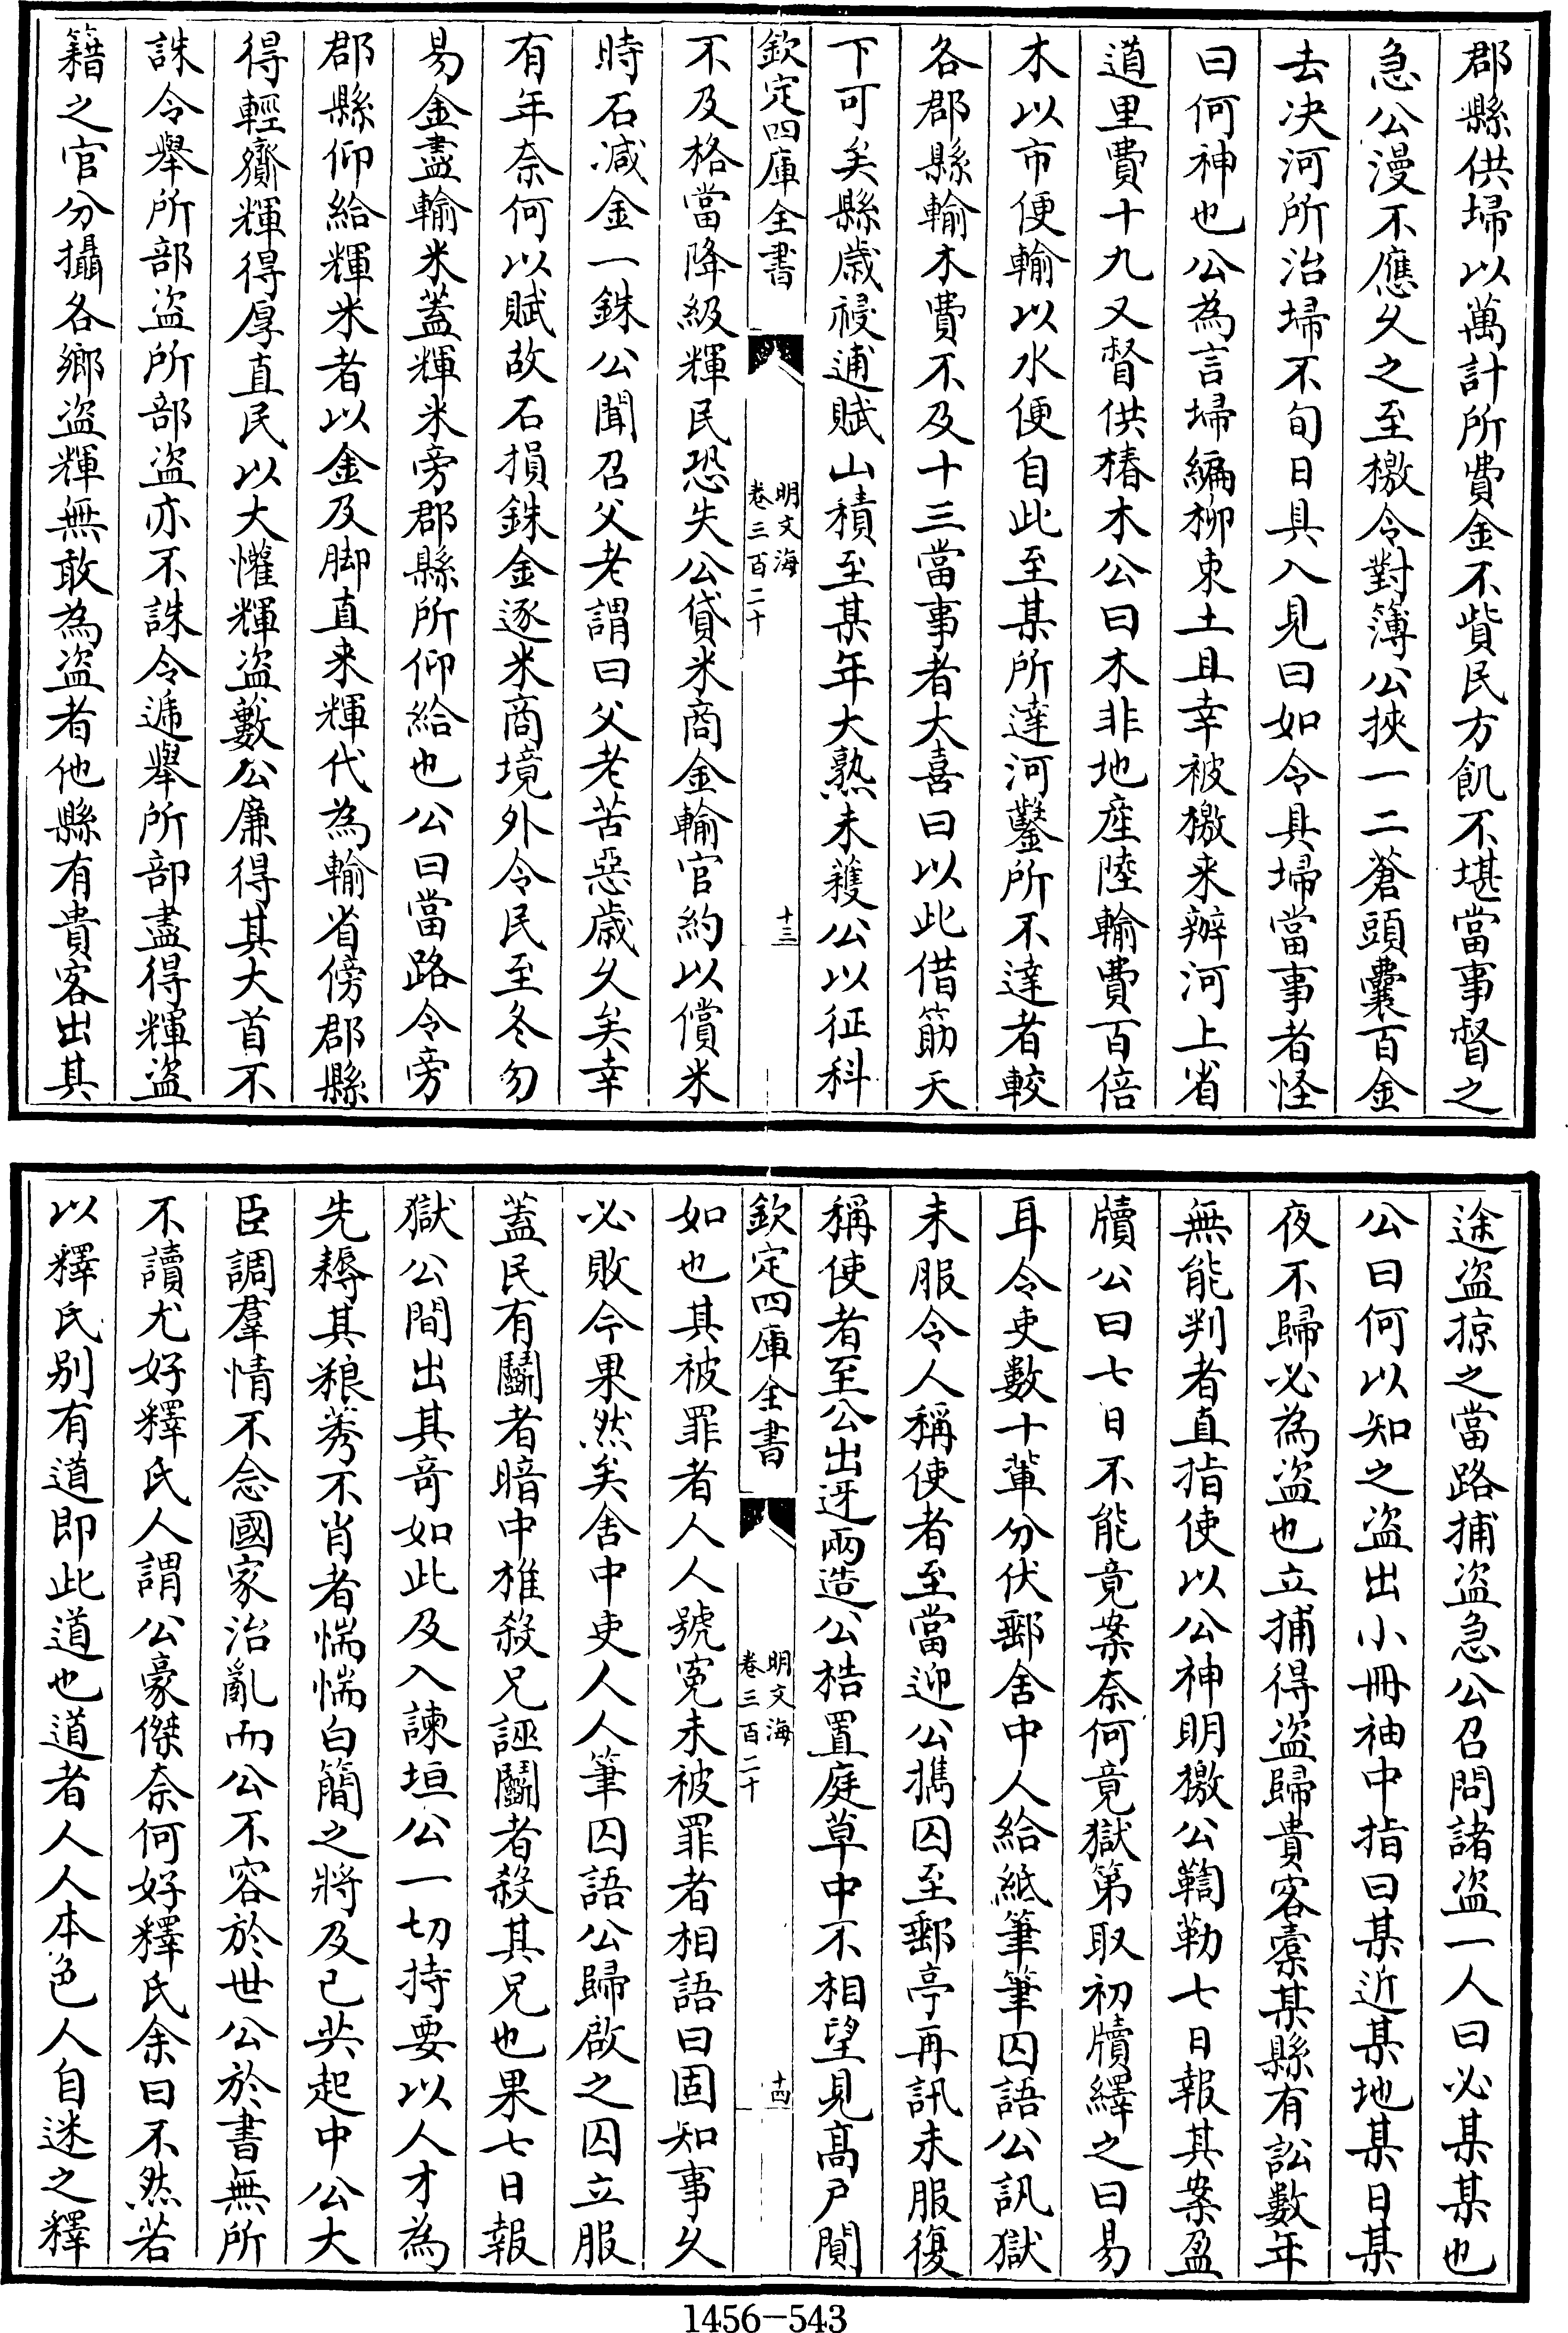 郡縣供埽以萬計所費金不貲民方飢不堪當事督之
急公漫不應久之至檄令對簿公挾一二蒼頭囊百金
去決河所治埽不旬日具入見曰如令具埽當事者怪
曰何神也公為言埽編柳束土且幸被檄来辦河上省
道里費十九又督供樁木公曰木非地產陸輸費百倍
木以市便輸以水便自此至某所達河鑿所不達者較
各郡縣輸木費不及十三當事者大喜曰以此借筯天
下可矣縣歲祲逋賦山積至某年大熟未穫公以征科
欽定四庫全書
明文海
卷三百二十
十三
不及格當降級輝民恐失公貸米商金輸官約以償米
時石減金一銖公聞召父老謂曰父老苦惡歲久矣幸
有年奈何以賦故石損銖金逐米商境外令民至冬勿
易金盡輸米蓋輝米旁郡縣所仰給也公曰當路令旁
郡縣仰給輝米者以金及脚直来輝代為輸省傍郡縣
得輕齎輝得厚直民以大懽輝盜藪公廉得其大首不
誅令舉所部盜所部盜亦不誅令遞舉所部盡得輝盜
籍之官分攝各鄉盜輝無敢為盜者他縣有貴客出其
途盜掠之當路捕盜急公召問諸盜一人曰必某某也
公曰何以知之盜出小冊袖中指曰某近某地某日某
夜不歸必為盜也立捕得盜歸貴客橐某縣有訟數年
無能判者直指使以公神明檄公鞫勒七日報其案盈
牘公曰七日不能竟案奈何竟獄第取初牘繹之曰易
耳令吏數十輩分伏郵舍中人給紙筆筆囚語公訊獄
未服令人稱使者至當迎公攜囚至郵亭再訊未服復
稱使者至公出迓兩造公梏置庭草中不相望見高戶閴
欽定四庫全書
明文海
卷三百二十
十四
如也其被罪者人人號寃未被罪者相語曰固知事久
必敗今果然矣舍中吏人人筆囚語公歸啟之囚立服
蓋民有鬭者暗中椎殺兄誣鬭者殺其兄也果七日報
獄公間出其奇如此及入諫垣公一切持要以人才為
先耨其稂莠不肖者惴惴白簡之將及已共起中公大
臣調羣情不念國家治亂而公不容於世公於書無所
不讀尤好釋氏人謂公豪傑奈何好釋氏余曰不然若
以釋氏别有道即此道也道者人人本色人自迷之釋
1456-543